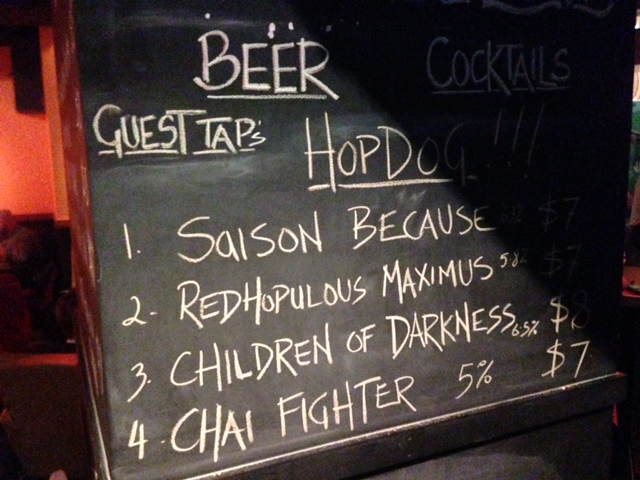 BEER COCKTAILS
GUEST TAP'S
HOPDOG!!!
1. SAISON BECAUSE $7
2. REDHOPULOUS MAXIMUS 5.8% $7
3. CHILDREN OF DARKNESS 6.5% $8
4. CHAI FIGHTER 5% $7